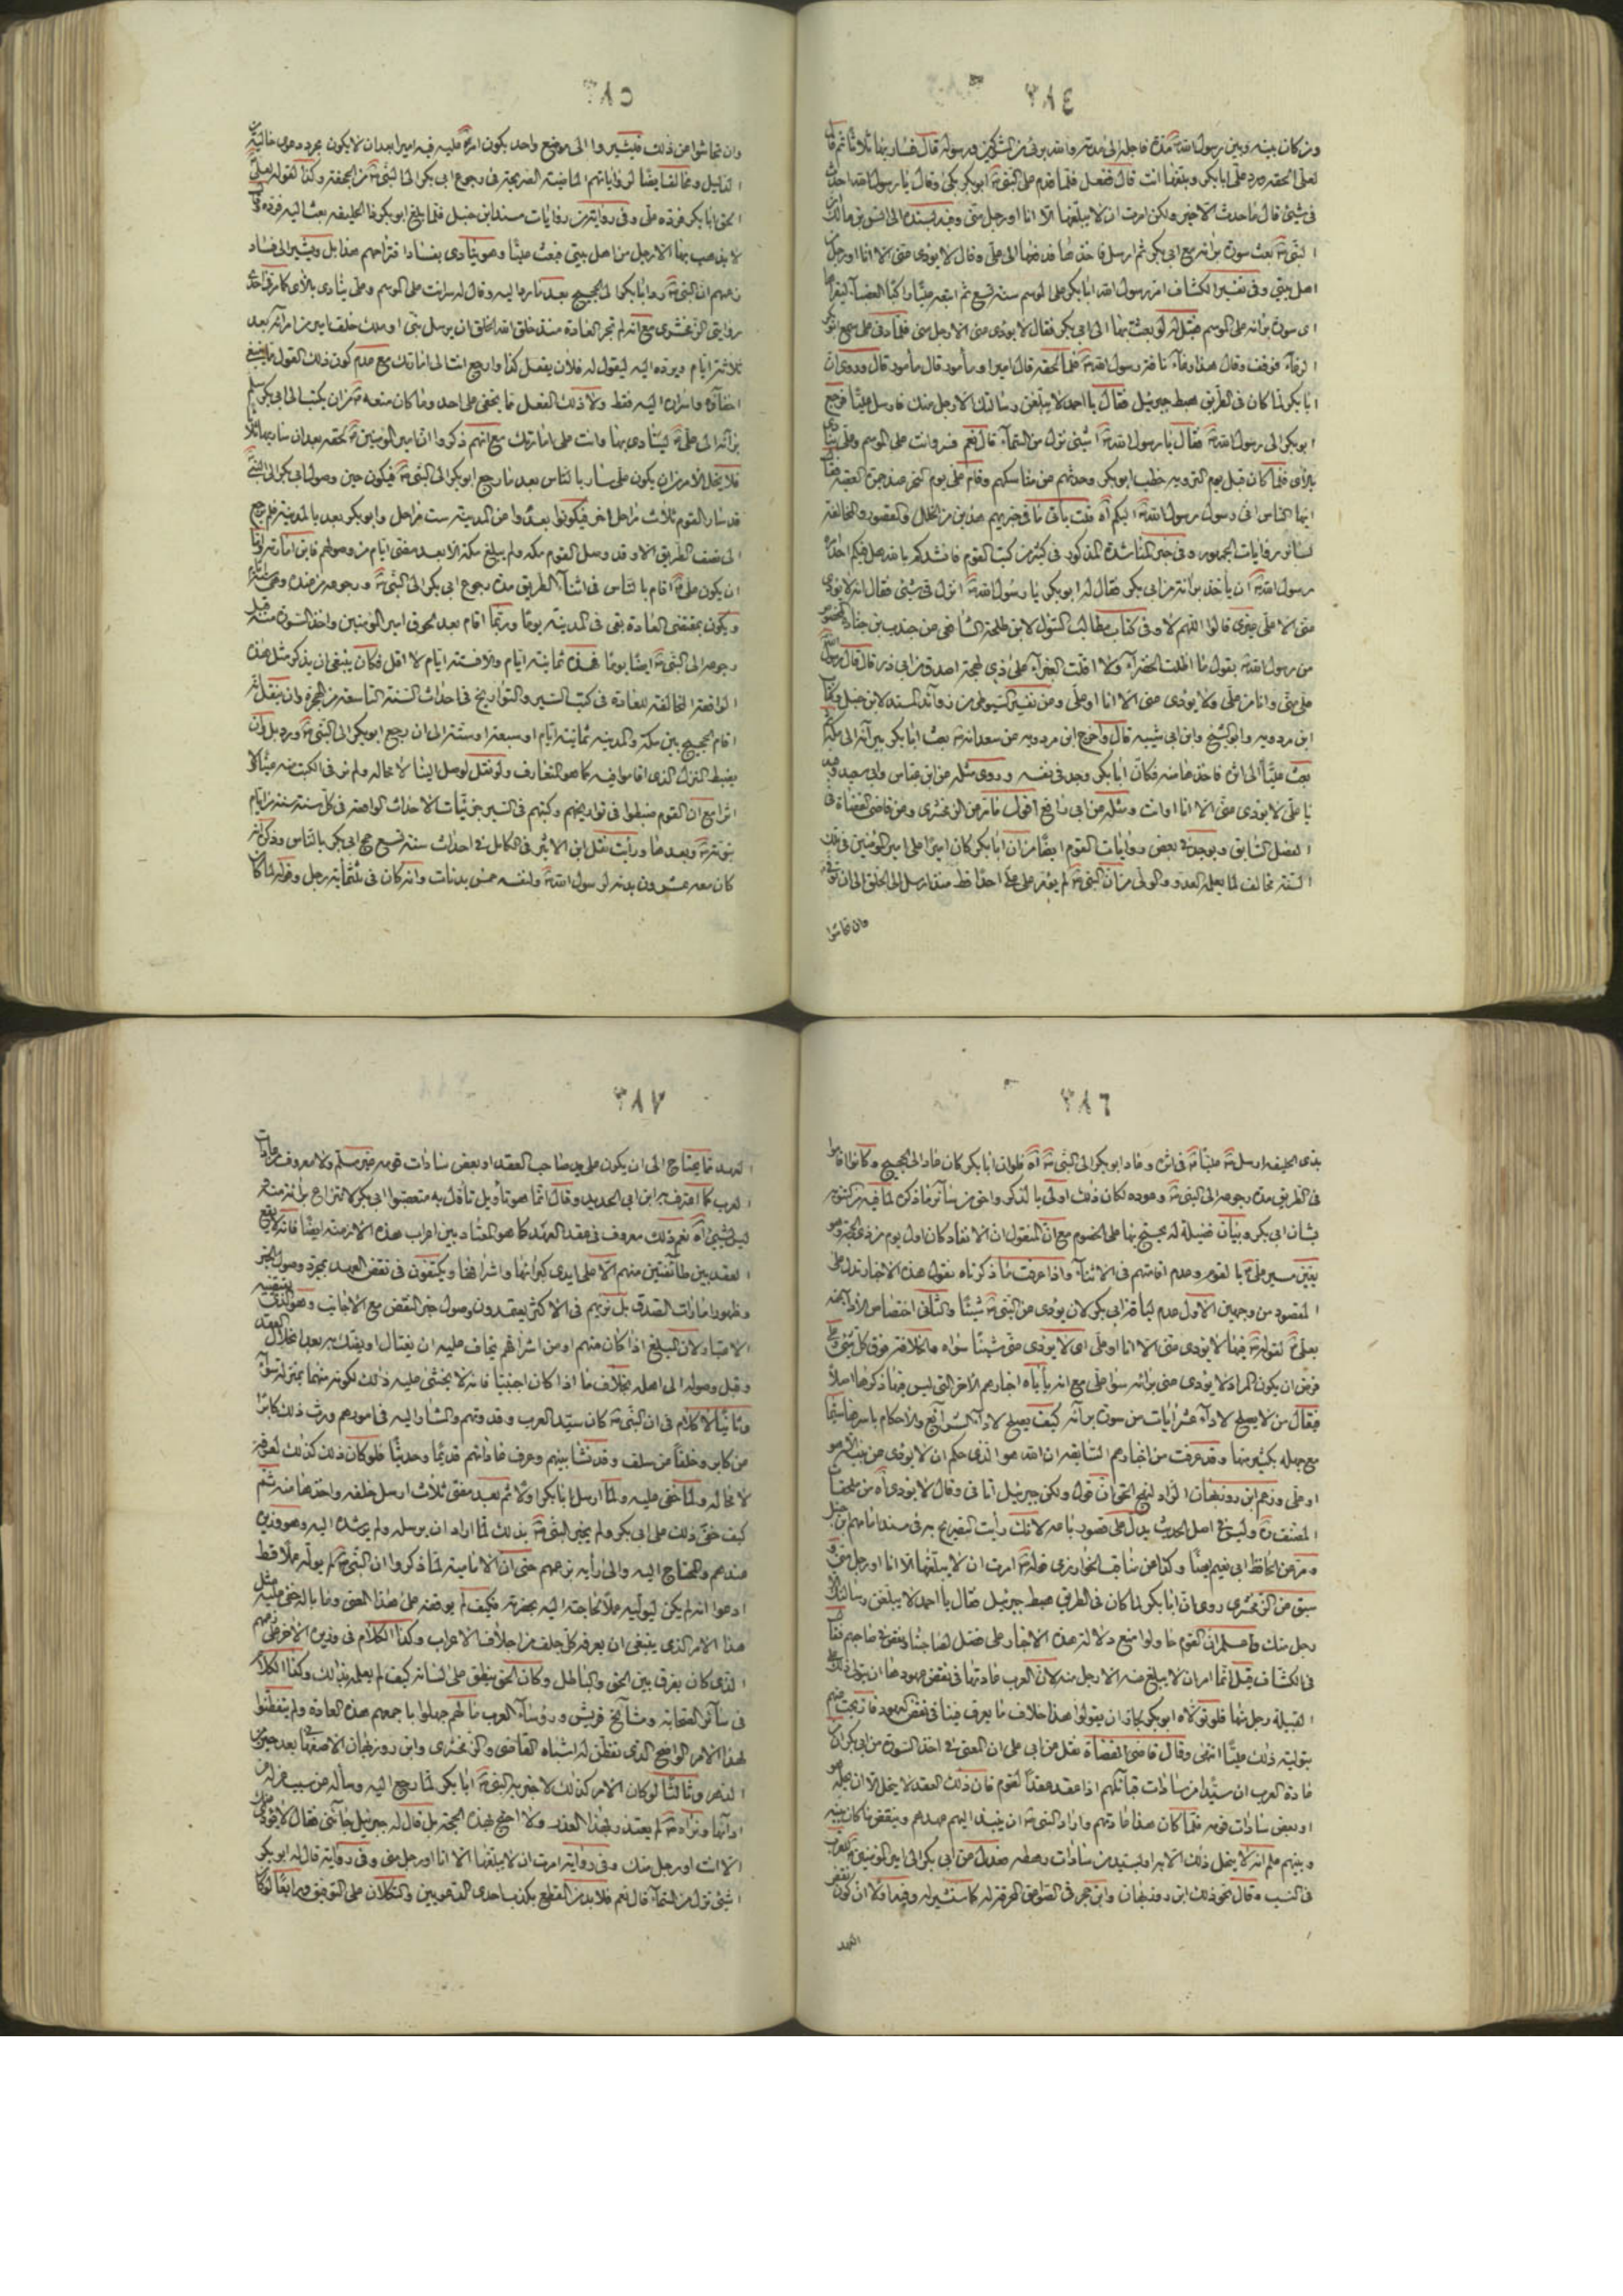 ٣٨٤
ومن كان بينه وبين رسول الله مدة فاجله الى مدته والله برئ من المشركين ورسوله قال فسار بها ثلاثا ثم قال
لعلي الحقه فرد علي ابا بكر وبلغها انت قال ففعل فلما قدم على النبي ابو بكر بكى وقال يا رسول الله احدث
في شئ قال ما حدث الا خير ولكن امرت ان لا يبلغها الا انا او رجل مني وفيه بسنده الى انس بن مالك ان
النبي بعث سورة براءة مع ابي بكر ثم ارسل فاخذها فدفعها الى علي وقال لا يؤدي عني الا انا او رجل من
اهل بيتي وفي تفسير الكشاف ان رسول الله ابا بكر على الموسم سنة تسع ثم اتبعه عليا راكبا العضباء ليقراها
اي سورة براءة على الموسم فقيل له لو بعثت بها الى ابي بكر فقال لا يؤدي عني الا رجل مني فلما دنى علي سمع ابو بكر
الرغاء فوقف وقال هذا رغاء ناقة رسول الله فلما لحقه قال امير او مأمور قال مأمور قال وروي ان
ابا بكر لما كان في الطريق هبط جبرئيل فقال يا احمد لا يبلغن رسالتك الا رجل منك فارسل عليا فرجع
ابو بكر الى رسول الله فقال يا رسول الله اشئ نزل من السماء قال نعم فسر وانت على الموسم وعلي ينادي
بالآي فلما كان قبل يوم التروية خطب ابو بكر وحدثهم عن مناسكهم وقام علي يوم النحر عند جمرة العقبة فقال
ايها الناس اني رسول رسول الله اليكم
رسول الله ان يأخذ براءة من ابي بكر فقال له ابو بكر يا رسول الله انزل في شئ فقال انه لا يؤدي
عني الا علي غيري قالوا اللهم لا وفي كتاب مطالب السؤل لابن طلحة الشافعي عن جندب بن جنادة
من رسول الله يقول ما اظلت الخضراء ولا اقلت الغبراء على ذي لهجة اصدق من ابي ذر قال قال رسول الله
علي مني وانا من علي ولا يؤدي عني الا انا او علي ومن تفسير السيوطي من زوائد المسند لابن حنبل
ابن مردويه وابو الشيخ وابن ابي شيبه قال واخرج ابن مردويه عن سعد ان بعث ابا بكر ببراءة الى مكة
بعث عليا الى اثره فاخذها منه فكان ابا بكر وجد في نفسه وروي مثله عن ابن عباس وابي سعيد وفيه
يا علي لا يؤدي عني الا انا او انت ومثله عن ابي رافع اقول
الفصل السابق ويوجد في بعض روايات القوم ايضا ان ابا بكر كان اميرا على امير المؤمنين في تلك
السنة مخالف لما يعلمه العدو والولي من ان النبي لم يؤمر على علي احدا قط منذ ارسل الى الخلق الى ان توفي
وان تحاشوا
٣٨٥
وان تحاشوا عن ذلك فليشيروا الى موضع واحد يكون امره عليه فيه اميرا بعد ان لا يكون مجرد دعوى خالية عن
الدليل ومخالف ايضا لرواياتهم الماضية الصريحة في رجوع ابي بكر الى النبي من الجحفة وكذا لقوله لعلي
الحق ابا بكر فرده علي وفي روايتين من روايات مسند ابن حنبل فلما بلغ ابو بكر ذا الحليفه بعث اليه فرده قال
لا يذهب بها الا رجل من اهل بيتي فبعث عليا وهو ينادي بفساد افترائهم هذا بل ويشير الى فساد
زعمهم ان النبي رد ابا بكر الى الحجيج بعد ما رجع اليه وقال له سر انت على الموسم وعلي ينادي بالآي
رواية الزمخشري مع انه لم تجر العادة منذ خلق الله الخلق ان يرسل نبي او ملك خلف امير من امرائه بعد
ثلاثة ايام ويرده اليه ليقول له فلان يفعل كذا وارجع انت الى امارتك مع عدم كون ذلك القول
براءة الى علي لينادي بها وانت على امارتك مع انهم ذكروا ان امير المؤمنين لحقه بعد ان سار بها ثلاثا
فلا يخل الامر من ان يكون علي سار بالناس بعد ما رجع ابو بكر الى النبي فيكون حين وصول ابي بكر الى النبي
قد سار القوم ثلاث مراحل اخر فيكونوا بعدوا عن المدينة ست مراحل وابو بكر بعد بالمدينة فلم يرجع
الى نصف الطريق الا وقد وصل القوم مكة
ان يكون علي اقام بالناس في اثناء الطريق مدة رجوع ابي بكر الى النبي ورجوعه من عنده
ويكون بمقتضى العادة بقي في المدينة يوما وربما اقام بعد لحوق امير المؤمنين واخذ السورة منه قبل
رجوعه الى النبي ايضا يوما فهذه ثمانية ايام ولا فستة ايام لا اقل فكان ينبغي ان يذكر مثل هذه
الواقعة المخالفة للعادة في كتب السير والتواريخ في احداث السنة التاسعة من الهجرة وان ينقل انه
اقام الحجيج بين مكة والمدينة ثمانية ايام او سبعة او ستة الى ان رجع ابو بكر الى النبي
يضبط المنزل الذي اقاموا فيه كما هو المتعارف ولو نقل لوصل الينا لا محالة ولم نر في الكتب منه عينا ولا
اثرا مع ان القوم ضبطوا في تواريخهم وكتبهم في السير جزئيات الاحداث الواقعة في كل سنة سنة من ايام
نبوته وبعدها ورأيت نقل ابن الاثير في الكامل في احداث سنة تسع حج ابي بكر بالناس وذكر انه
كان معه عشرون بدنة لرسول الله ولنفسه خمس بدنات وانه كان في ثلثمائة رجل وقوله لما كان
٣٨٦
بذي الحليفه ارسل عليا في اثره وعاد ابو بكر الى النبي فلو ان ابا بكر كان عاد الى الحجيج وكانوا اقاموا
في الطريق مدة رجوعه الى النبي وعوده لكان ذلك اولى بالذكر واحرى من سائر ما ذكره لما فيه من
بشأن ابي بكر وبيان فضيلة له يحتج بها على الخصوم مع ان المنقول ان الانفاد كان اول يوم من ذي الحجة وهو
يعين سير علي بالقوم وعدم اقامتهم في الاثناء واذا عرفت ما ذكرناه نقول هذه الاخبار تدل على
المقصود من وجهين الاول عدم لياقة ابي بكر لان يؤدي عن النبي شيئا والثاني اختصاص الاداء عنه
بعلي لقوله فيها لا يؤدي عني الا انا او علي اي لا يؤدي عني شيئا سواه والخلافة فوق كل شئ
فرض ان يكون المراد لا يؤدي عني براءة سوا علي مع انه يأباه اخبارهم الاخر التي ليس فيها ذكرها اصلا
فقال من لا يصلح لاداء عشر ايات من سورة براءة كيف يصلح لاداء الشرائع والاحكام باسرها سيما
مع جهله بكثير منها وقد عرفت من اخبارهم السابقة ان الله هو الذي حكم ان لا يؤدي عن نبيه الا هو
او علي وزعم ابن روزبهان الراد لنهج الحق ان قول ولكن جبرئيل اتاني وقال لا يؤدي
المصنف وليس في اصل الحديث يدل على قصور باعه لانك رأيت التصريح به في مسند امامهم ابن حنبل
ومر عن الحافظ ابي نعيم ايضا وكذا عن مناقب الخوارزمي قوله امرت ان لا يبلغها الا انا او رجل مني
سبق عن الزمخشري روي ان ابا بكر لما كان في الطريق هبط جبرئيل فقال يا احمد لا يبلغن رسالتك الا
رجل منك
في الكشاف قيل انما امر ان لا يبلغ عنه الا رجل منه لان العرب عادتها في نقض عهودها ان يتولى ذلك على
القبيلة رجل منها فلو تولاه ابو بكر لجاز ان يقولوا هذا خلاف ما يعرف فينا في نقض العهود
بتولية ذلك عليا انتهى وقال قاضي القضاة نقل عن ابي علي ان المعنى في اخذ السورة من ابي بكر ان من
عادة العرب ان سيدا من سادات قبائلهم اذا عقد عقدا لقوم فان ذلك العقد لا ينحل الا ان يحله هو
او بعض سادات قومه فلما كان هذا عادتهم واراد النبي ان ينبذ اليهم عهدهم وينقض ما كان بينه
وبينهم علم انه لا ينحل ذلك الا به او بسيد من سادات رهطه فعدل عن ابي بكر الى امير المؤمنين المقرب
في النسب وقال نحو ذلك ابن روزبهان وابن حجر في الصواعق المحرقة
العهد
٣٨٧
العهد مما يحتاج الى ان يكون على يد صاحب العقد او بعض سادات قومه غير مسلم ولا معروف من عادات
العرب كما اعترف به ابن ابي الحديد وقال انما هو تأويل تأول به متعصبوا ابي بكر لانتزاع براءة منه
ليس بشئ نعم ذلك معروف في عقد العهد كما هو المعتاد بين اعراب هذه الازمنة ايضا فانه لا يقع
العقد بين طائفتين منهم الا على ايدي كبرائها واشرافها ويكتفون في نقض العهد بمجرد وصول الخبر
وظهور امارات الصدق بل تريهم في الاكثر يعتمدون وصول خبر النقض مع الاجانب
الاعتبار ولان المبلغ اذا كان منهم او من اشرافهم يخاف عليه ان يغتال او يفتك به بعد انحلال العقد
وقبل وصوله الى اهله بخلاف ما اذا كان اجنبيا فانه لا يخشى عليه ذلك
وثانيا لا كلام في ان النبي كان سيد العرب وقدوتهم والمشار اليه في امورهم ورث ذلك كابرا
عن كابر وخلفا عن سلف وقد نشأ بينهم وعرف عاداتهم قديما وحديثا فلو كان ذلك كذلك لعرفه
لا محاله ولما خفي عليه ولما ارسل ابا بكر اولا ثم بعد مضي ثلاث ارسل خلفه واخذها منه ثم
كيف خفي ذلك على ابي بكر ولم يخبر النبي بذلك لما اراد ان يرسله ولم يرشده اليه وهو وزيره
عندهم والمحتاج اليه والى رأيه بزعمهم حتى ان الامامية لما ذكروا ان النبي لم يوله عملا قط
ادعوا انه لم يكن ليوليه عملا لحاجته اليه بحضرته فكيف لم يوقفه على هذا المعنى وما باله خفي عليه مثل
هذا الامر الذي ينبغي ان يعرفه كل جلف من اجلاف الاعراب وكذا الكلام في وزيره الاخر
الذي كان يفرق بين الحق والباطل وكان الحق ينطق على لسانه كيف لم يعلمه بذلك وكذا الكلام
في سائر الصحابه ومشائخ قريش ورؤساء العرب ما لهم جهلوا باجمعهم هذه العادة ولم يتفطنوا
لهذا الامر الواضح الذي تفطن له اشباه القاضي والزمخشري وابن روزبهان الاصفهاني بعد حين من
الدهر وثالثا لو كان الامر كذلك لاخبر به النبي ابا بكر لما رجع اليه وسأله عن سبب عزله
لم يعتذر بهذا العذر ولا احتج بهذه الحجة بل قال له جبرئيل جاءني فقال لا يؤدي عنك
الا انت او رجل منك وفي رواية امرت ان لا يبلغها الا انا او رجل مني وفي رواية قال له ابو بكر
اشئ نزل من السماء قال نعم فلا بد من القطع بكذب احدى الدعويين والتكلان على التوفيق ورابعا لو كان